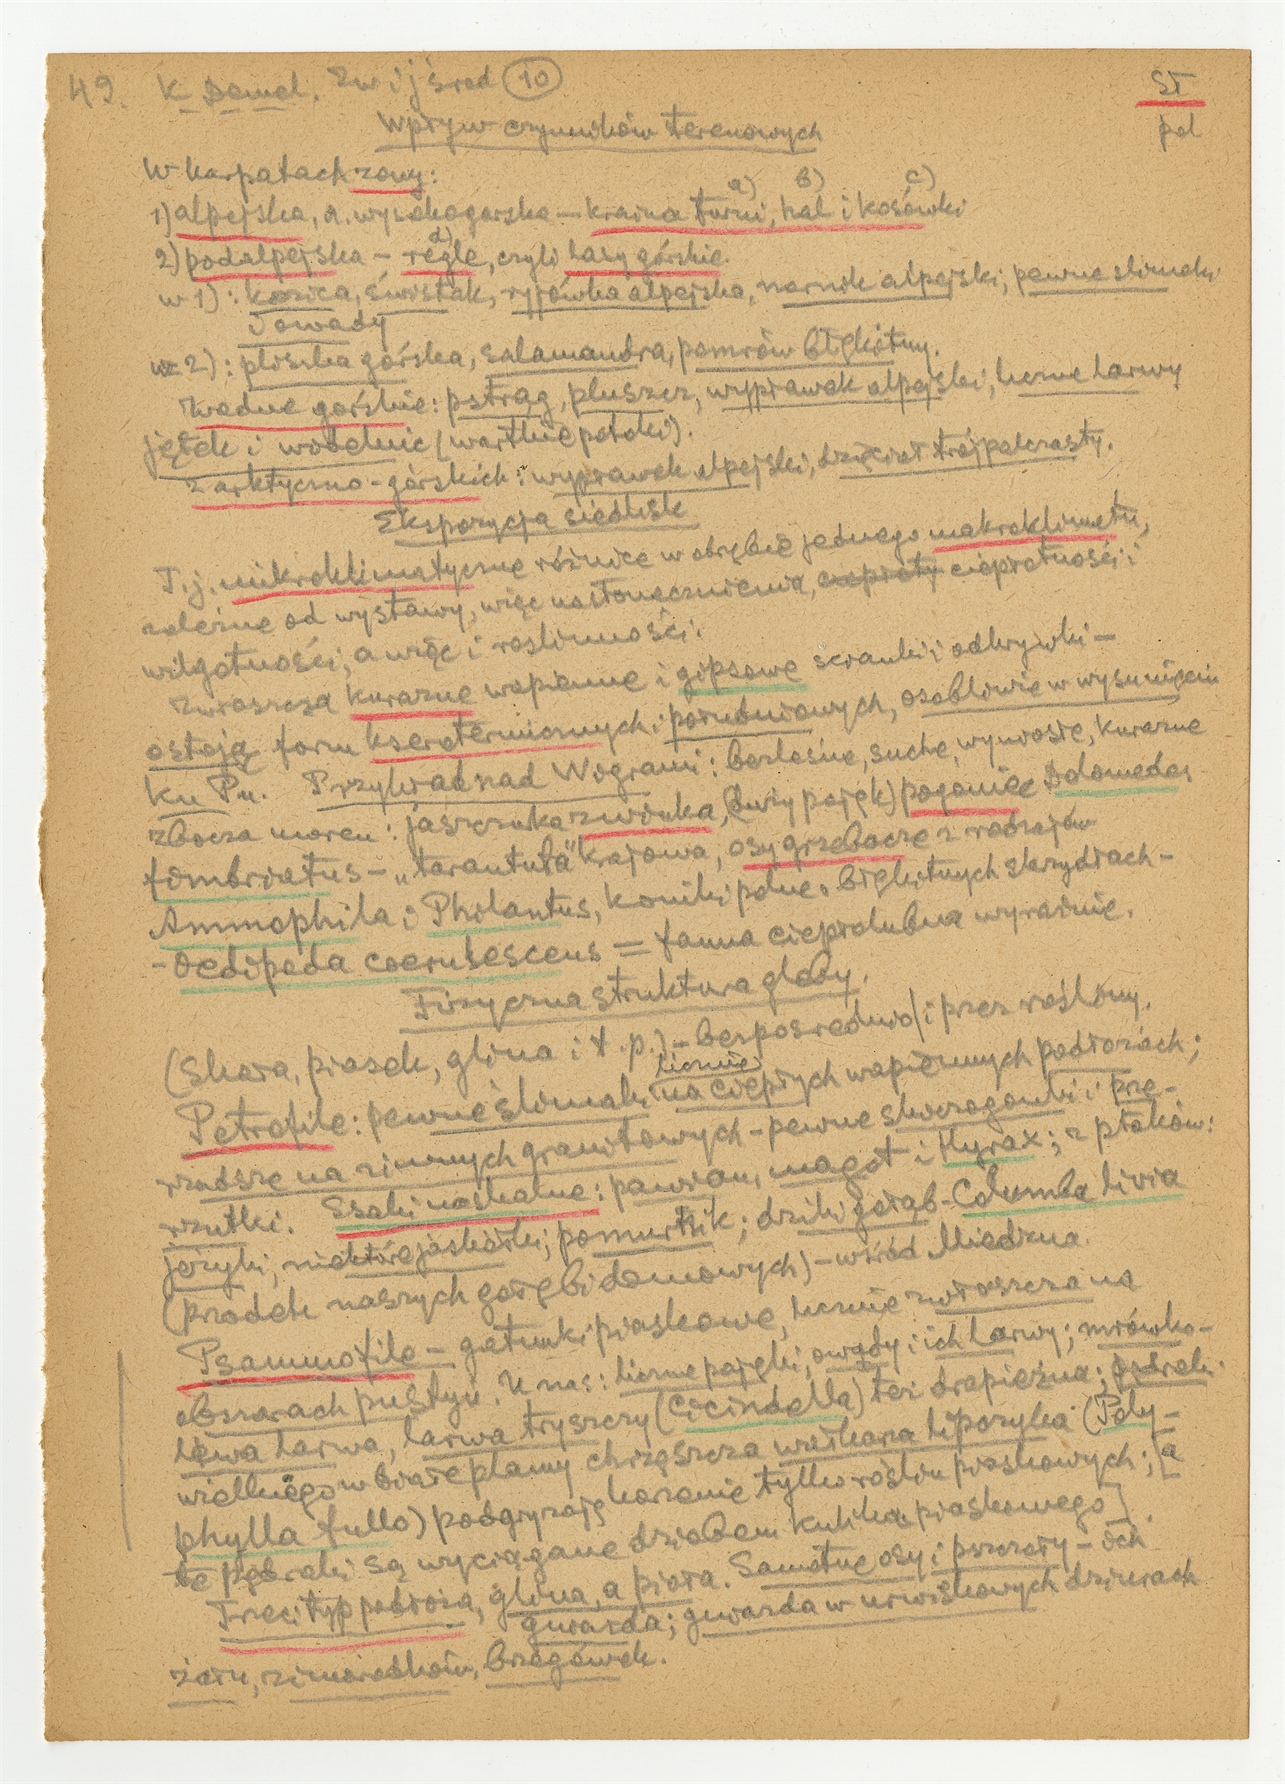 49. K Demel. Zw i j śred (10)
ST
pol
Wpływ czynników terenowych
W Karpatach zony:
a) b) c)
1) alpejska, n. wysokogórska – kraina turni, hal i kosówki
d)
2) podalpejska – regle, czyli lasy górskie.
w 1): kozica, świstak, ryjówka alpejska, nornik alpejski; pewne ślimaki
i owady
w 2): pliszka górska, salamandra, pomrów błękitny.
Wodne górskie: pstrąg, pluszcz, wypławek alpejski, liczne larwy
jętek i widelnic (wartkie potoki).
z arktyczno-górskich: wypławek alpejski, dzięcioł trójpalczasty.
Ekspozycja siedlisk
T.j. mikroklimatyczne różnice w obrębie jednego makroklimatu,
zależne od wystawy, więc nasłonecznienia, ciepłoty ciepłotności i
wilgotności, a więc i roślinności.
Zwłaszcza kurazne wapienne i gipsowe scianki i odkrywki –
ostoją form kserotermicznych i południowych, osobliwie w wysunięciu
ku Pn. Przykład nad Wigrami: bezleśne, suche, wyniosłe, kurazne
zbocza moren: jaszczurka zwinka, (duży pająk) pogoniec Dolomedes
fimbriatus – „tarantula" krajowa, osy grzebacze z rodzajów
Ammophila i Philantus, koniki polne o błękitnych skrzydłach –
– Oedipoda coerulescens = fauna ciepłolubna wyraźnie.
Fizyczna struktura gleby.
(Skała, piasek, glina i t.p.) – bezpośrednio/i przez rośliny.
licznie
Petrofile: pewne ślimaki na ciepłych wapiennych podłożach;
rzadsze na zimnych granitowych – pewne skorogonki i prze-
rzutki. Ssaki naskalne: pawian, magot i Hyrax; z ptaków:
jeżyki, niektóre jaskółki, pomurnik; dziki gołąb – Columba livia
(przodek naszych gołębi domowych) – wśród Miedzna.
Psammofile – gatunki piaskowe, licznie zwłaszcza na
obszarach pustyń. U nas: liczne pająki, owady i ich larwy; mrówko-
lwa larwa, larwa tryszczy (Cicindella) też drapieżna; pędraki
wielkiego w białe plamy chrząszcza wałkarza lipczyka (Poly-
phylla fullo) podgryzają korzenie tylko roślin piaskowych; [a
te pędraki są wyciągane dziobem kulika piaskowego].
Trzeci typ podłoża, glina, a ptaka. Samotne osy i pszczoły – ich
gniazda; gniazda w urwiskowych dziurach
żołn, zimorodków, brzegówek.